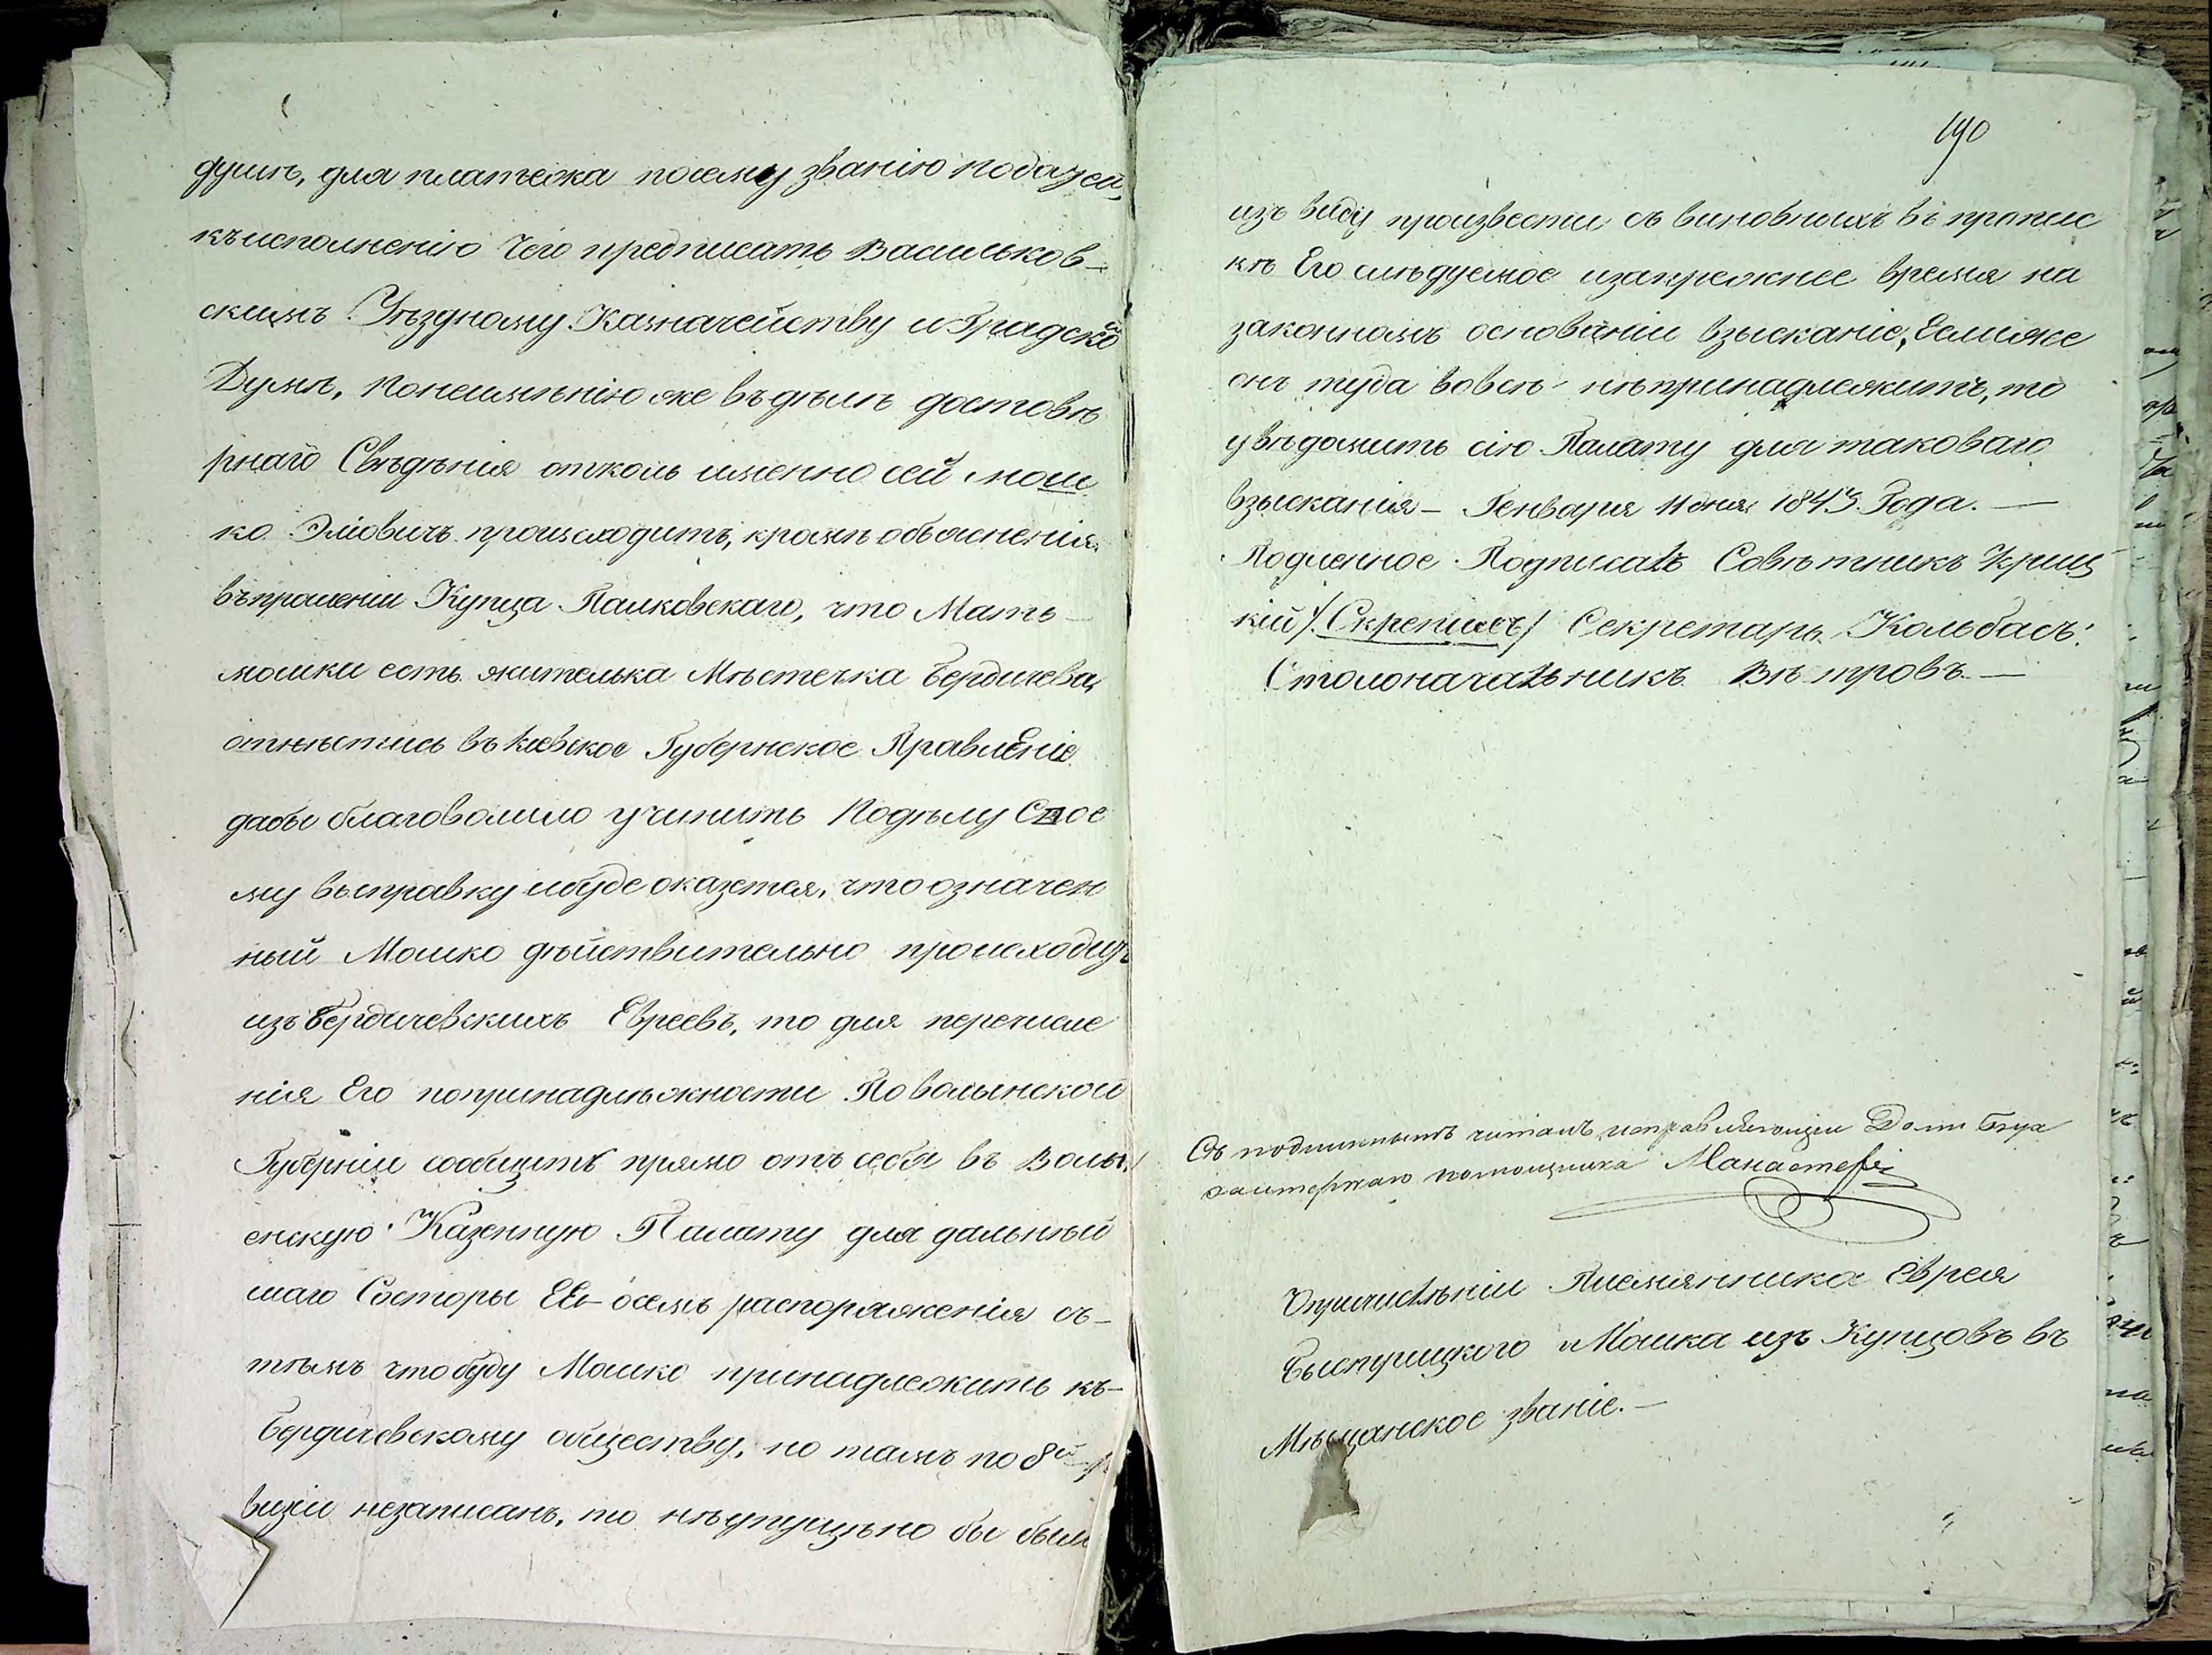 душъ, для платежа посему званію податей,
къисполненію чего предписать Васильков-
скимъ Уѣздному Казначейству и Градской
Думѣ, понеимѣнію же въдѣлѣ достовѣ
рнаго Свѣдѣнія отколь именно сей Мош
ко Эліовичъ происходитъ, кромѣ объясненія
въпрошеніи Купца Палковскаго, что Мать
мошки есть жителька Мѣстечка Бердичева,
отнѣстись въ Кіевское Губернское Правленіе
дабы благоволило учинить Подѣлу Свое
му выправку ибуде окажется, что означен
ный Мошко дѣйствительно происходитъ
изъ Бердичевскихъ Евреевъ, то для перечисле
нія Его попринадлѣжности По волынской
Губерніи сообщитъ прямо отъ себя въ Волы
нскую Казенную Палату для дальнѣй
шаго Состоры Её осемъ распоряженія съ-
тѣмъ что буду Мошко принадлежить къ-
Бердичевскому обществу, но тамъ по 8й ре
визіи незаписанъ, то нѣупущѣно бы было
190
изъ виду произвести съ виновныхъ въ пропис
кѣ Его слѣдуемое изапрежнее время на
законномъ основаніи взысканіе, Еслиже
онъ туда вовсѣ нѣпринадлежитъ, то
увѣдомить сію Палату для таковаго
взысканія - Генваря 11 дня 1843 Года. —
Подленное Подписалъ Совѣтникъ Криц
кій /Скрепилъ/ Секретарь Кольбасъ:
Столоначальникъ Вѣтровъ. —
Съ подлиннымъ читалъ исправляющій Долж Бух
халтерскаго помощника Манастер
Опричислѣніи Племянника Еврея
Быстрицкого Мошка изъ Купцовъ въ
Мѣщанское званіе. —